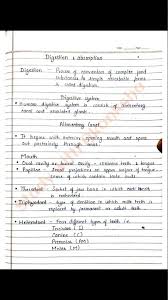 Digestion & absorption
Digestion - Process of conversion of complex food
substances to simple absorbable forms
is called digestion.
Digestive system
Human digestive system is consist of alimentary
canal and associated glands.
Alimentary Canal
It begins with anterior opening mouth and opens
out posteriorly through anus.
Mouth
Oral cavity or buccal cavity - contains teeth & tongue
Papillae - Small projections on upper surface of tongue
some of which contain taste buds
Thecodont - Socket of jaw bone in which each tooth
is embedded
Diphyodont - type of dentition in which milk teeth
is replaced by permanent or adult teeth
Heterodont - Four different types of teeth i.e.
Incisors (I)
Canine (C)
Premolar (PM)
Molars (M)